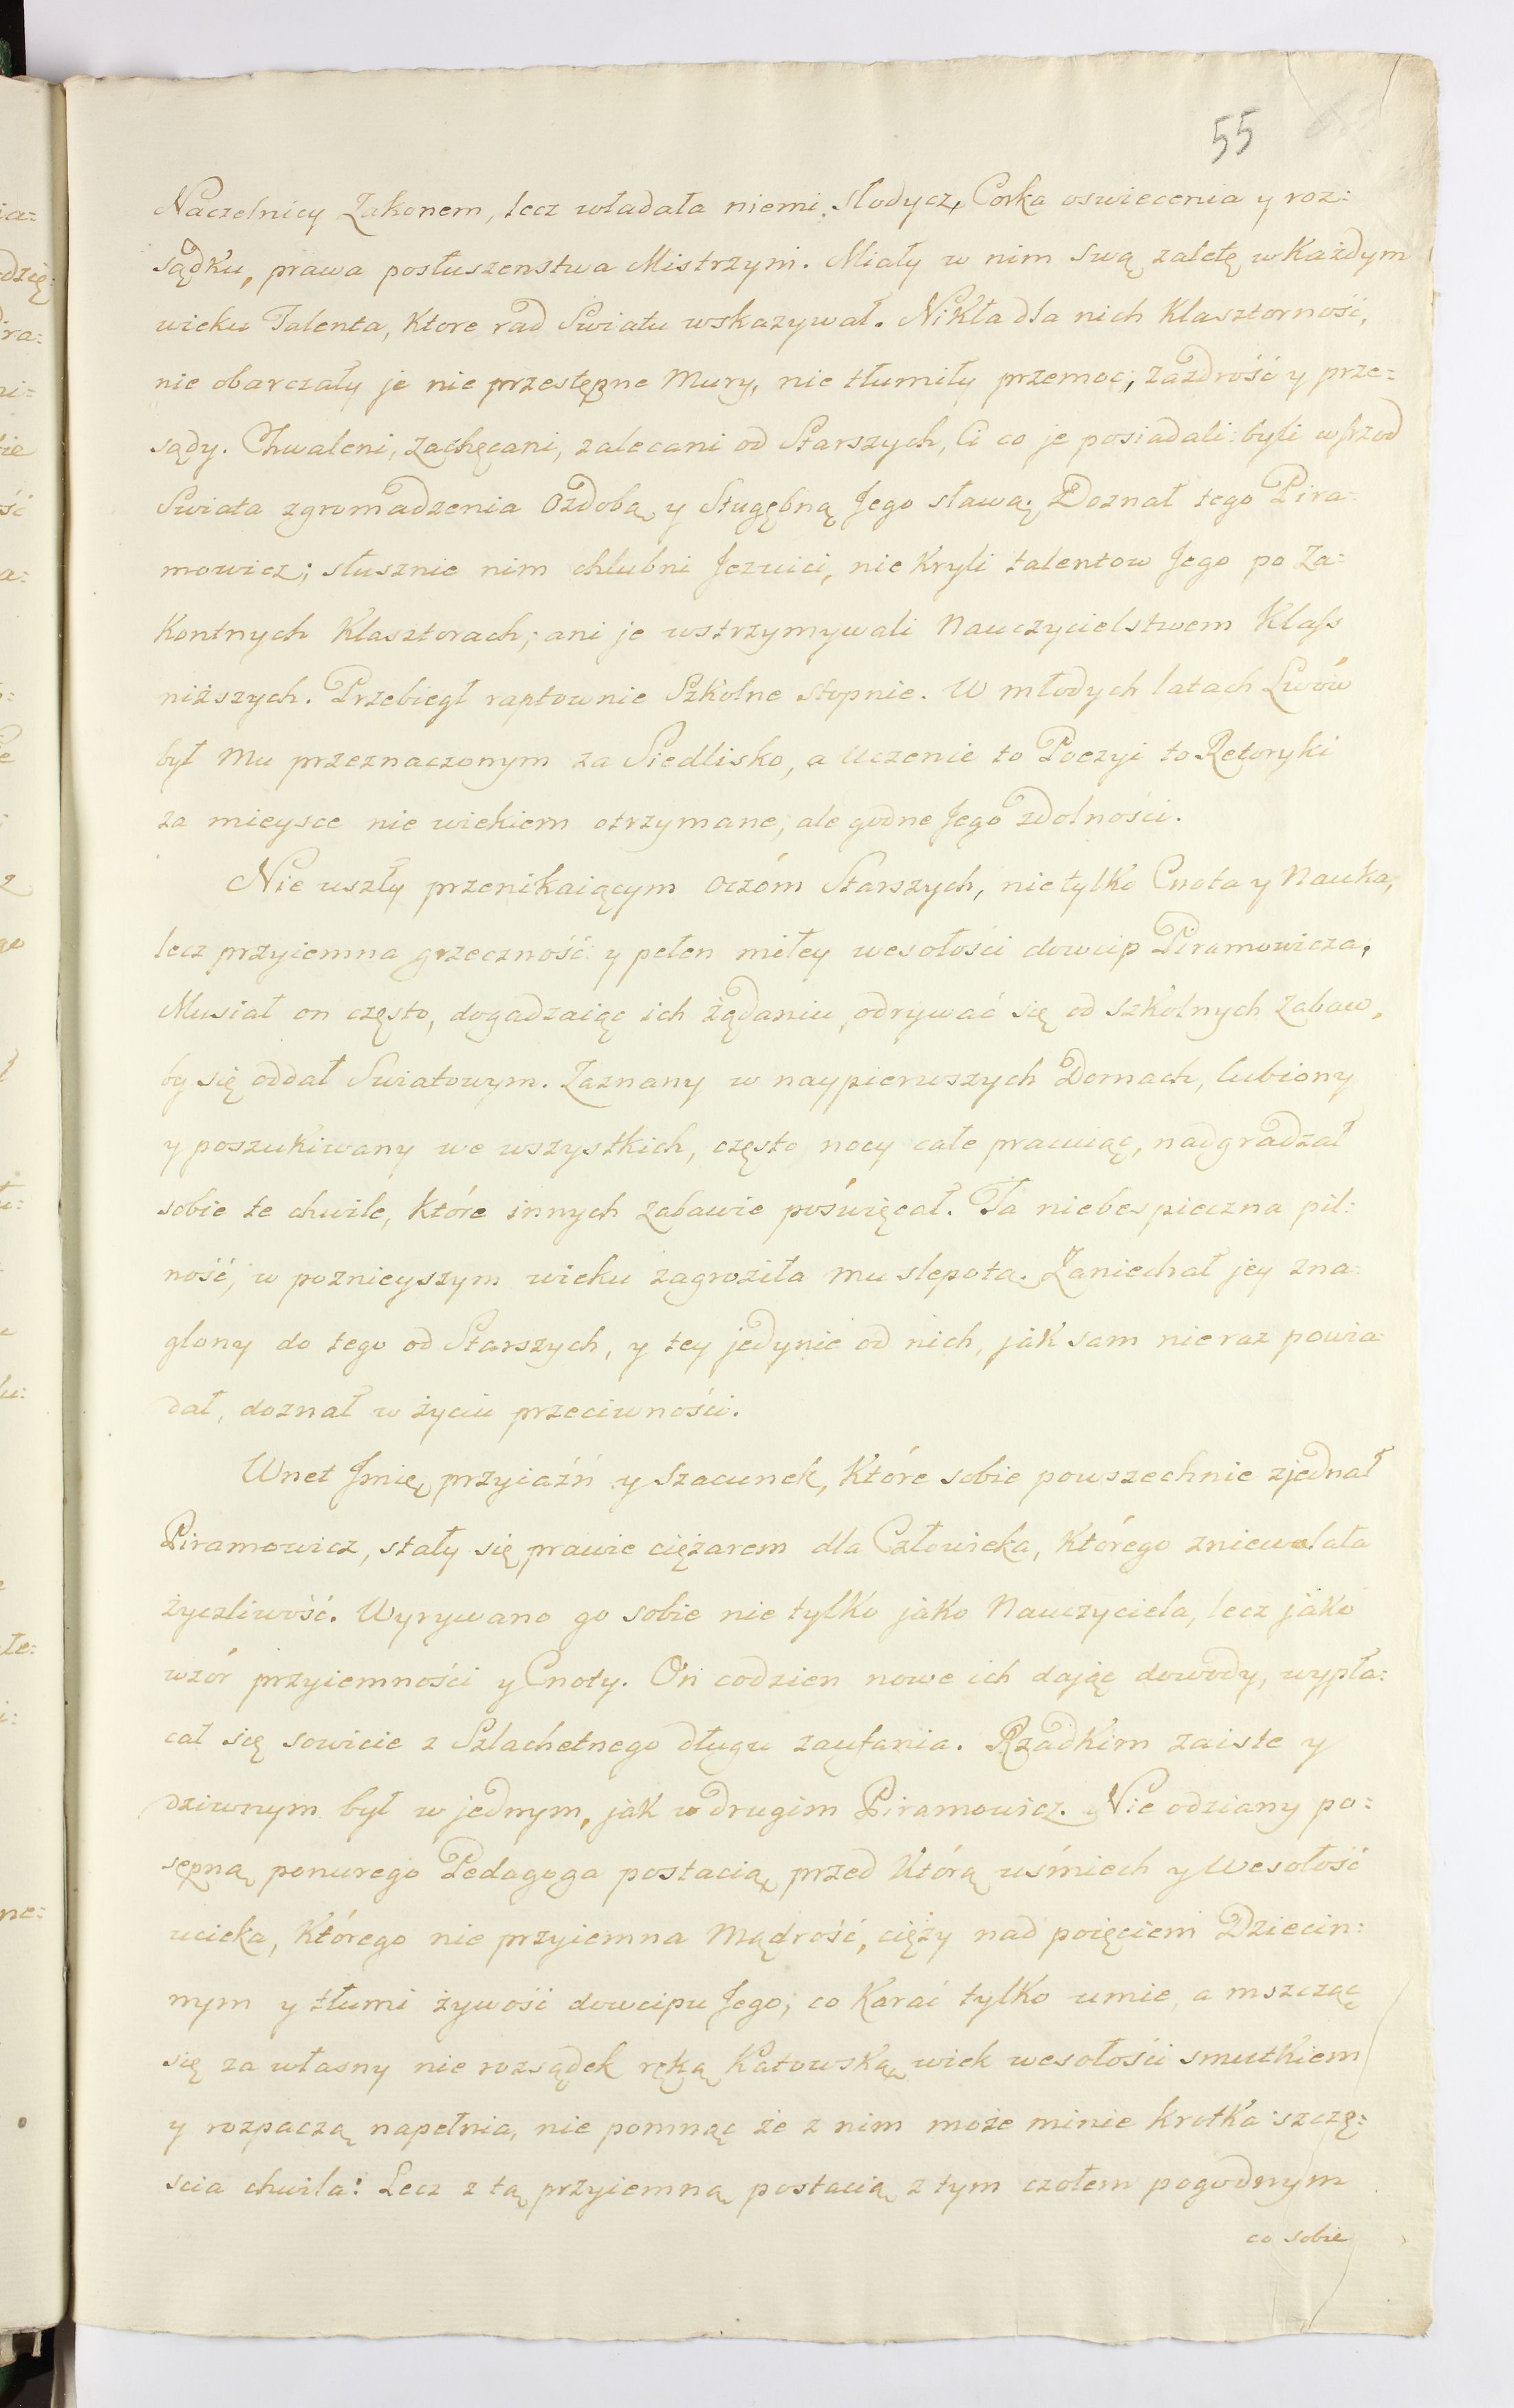 55
Naczelnicy Zakonem, lecz władała niemi słodycz, Corka oswiecenia y roz:
sądku, prawa posłuszenstwa Mistrzyni. Miały w nim swą zaletę w Każdym
wieku Talenta, Ktore rad Swiatu wskazywał. Nikła dla nich Klasztorność,
nie obarczały je nie przestępne Mury, nie tłumiły przemoc, zazdrość y prze:
sądy. Chwaleni, zachęcani, zalecani od Starszych, Ci co je posiadali byli wsrzod
Swiata zgromadzenia Ozdobą, y Stugębną Jego sławą. Doznał tego Pira:
mowicz; słusznie nim chlubni Jezuici, nie Kryli talentow Jego po Za:
Kontnych Klasztorach; ani je wstrzymywali Nauczycielstwem Klass
niższych. Przebiegł raptownie Szkolne stopnie. W młodych latach Lwów
był Mu przeznaczonym za Siedlisko, a Uczenie to Poezyi to Retoryki
za mieysce nie wiekiem otrzymane, ale godne Jego zdolności.
Nie uszły przenikaiącym Oczóm Starszych, nie tylko Cnota y Nauka,
lecz przyiemna grzeczność y pełen miłey wesołości dowcip Piramowicza.
Musiał on często, dogadzaiąc ich żądaniu, odrywać się od szkolnych Zabaw,
by się oddał Swiatowym. Zaznany w naypierwszych Domach, lubiony
y poszukiwany we wszystkich, często nocy całe pracuiąc, nadgradzał
sobie te chwile, które innych zabawie poświęcał. Ta niebespieczna pil:
ność, w poznieyszym wieku zagroziła mu slepotą. Zaniechał jey zna:
glony do tego od Starszych, y tey jedynie od nich, jak sam nie raz powia:
dał, doznał w życiu przeciwności.
Wnet Jmię, przyiaźń y Szacunek, Które sobie powszechnie zjednał
Piramowicz, stały się prawie ciężarem dla Człowieka, Którego zniewalała
życzliwość. Wyrywano go sobie nie tylko jako Nauczyciela, lecz jako
wzór przyiemności y Cnoty. On codzien nowe ich dając dowody, wypła:
cał się sowicie z Szlachetnego długu zaufania. Rzadkim zaiste y
dziwnym był w jednym, jak w drugim Piramowicz. Nie odziany po:
sępną ponurego Pedagoga postacią, przed Którą uśmiech y Wesołość
ucieka, Którego nie przyiemna Mądrość, cięży nad poięciem Dziecin:
nym y tłumi żywość dowcipu Jego; co Karać tylko umie, a mszcząc
się za własny nie rozsądek ręką Katowską, wiek wesołości smutkiem
y rozpaczą napełnia, nie pomnąc że z nim może minie krotka szczę:
scia chwila: Lecz z tą przyiemną postacią z tym czołem pogodnym
co sobie